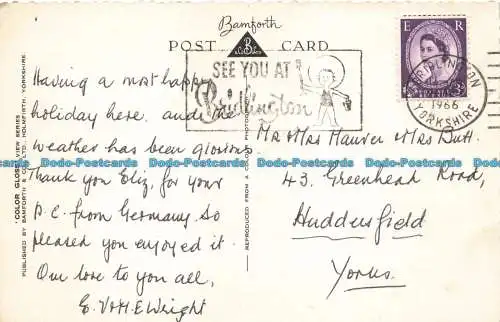 Bamforth
POST CARD
SEE YOU AT
Bridlington
E R
BRIDLINGTON
1966
YORKSHIRE
Having a most happy
holiday here. and the
weather has been glorious
Thank you Eliz, for your
P.C. from Germany. So
pleased you enjoyed it.
Our love to you all,
E. V & H. E Wright
Mr & Mrs Maurer & Mrs Butt.
43. Greenhead Road,
Huddersfield
Yorks.
"COLOR GLOSS" VIEW SERIES
PUBLISHED BY BAMFORTH & CO., LTD., HOLMFIRTH, YORKSHIRE.
REPRODUCED FROM A COLOR PHOTOGRAPH
Dodo-Postcards Dodo-Postcards Dodo-Postcards Dodo-Postcards Dodo-Postcards